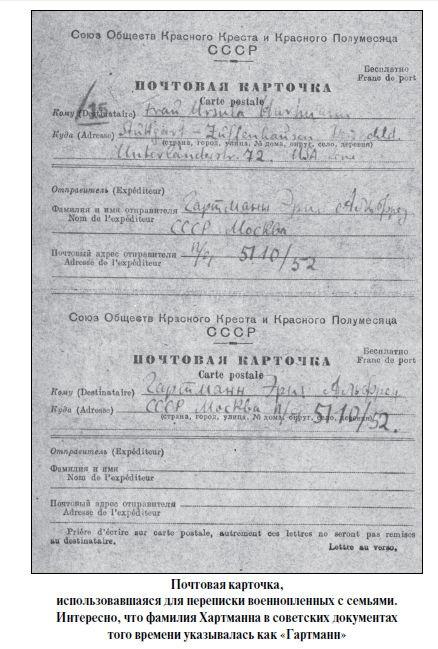 Союз Обществ Красного Креста и Красного Полумесяца
СССР
Бесплатно
Franc de port
ПОЧТОВАЯ КАРТОЧКА
Carte postale
115
Кому (Destinataire) Frau Ursula Hartmann
Куда (Adresse) Stuttgart - Zuffenhausen
(страна, город, улица, № дома, округ, село, деревня)
Unterländerstr. 72. USA
Отправитель (Expéditeur)
Фамилия и имя отправителя Гартманн Эрих Альфред
Nom de l'expéditeur
СССР Москва
Почтовый адрес отправителя п/я 5110/52
Adresse de l'expéditeur
Союз Обществ Красного Креста и Красного Полумесяца
СССР
Бесплатно
Franc de port
ПОЧТОВАЯ КАРТОЧКА
Carte postale
Кому (Destinataire) Гартманн Эрих Альфред
Куда (Adresse) СССР Москва п/я 5110/52.
(страна, город, улица, № дома, округ, село, деревня)
Отправитель (Expéditeur)
Фамилия и имя
Nom de l'expéditeur
Почтовый адрес отправителя
Adresse de l'expéditeur
Prière d'écrire sur carte postale, autrement ces lettres ne seront pas remises
au destinataire.
Lettre au verso.
Почтовая карточка,
использовавшаяся для переписки военнопленных с семьями.
Интересно, что фамилия Хартманна в советских документах
того времени указывалась как «Гартманн»